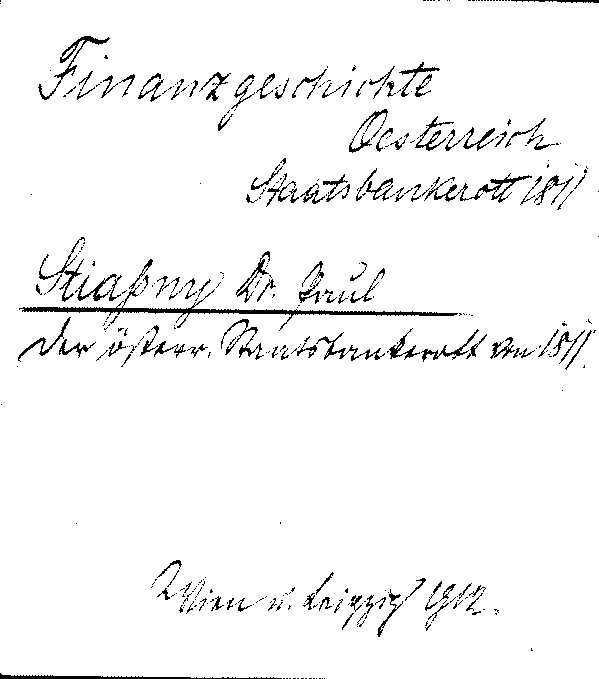 Finanzgeschichte
Oesterreich
Staatsbankerott 1811
Stiaßny Dr. Paul
Der österr. Staatsbankerott von 1811.
Wien u. Leipzig 1912.